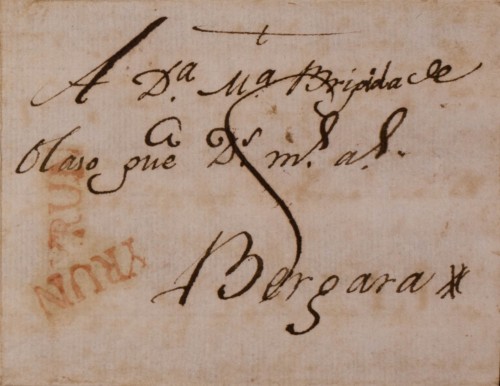 A D.ª M.ª Brigida de
Olaso que D.s m.s a.s
Bergara
YRUN
YRUN